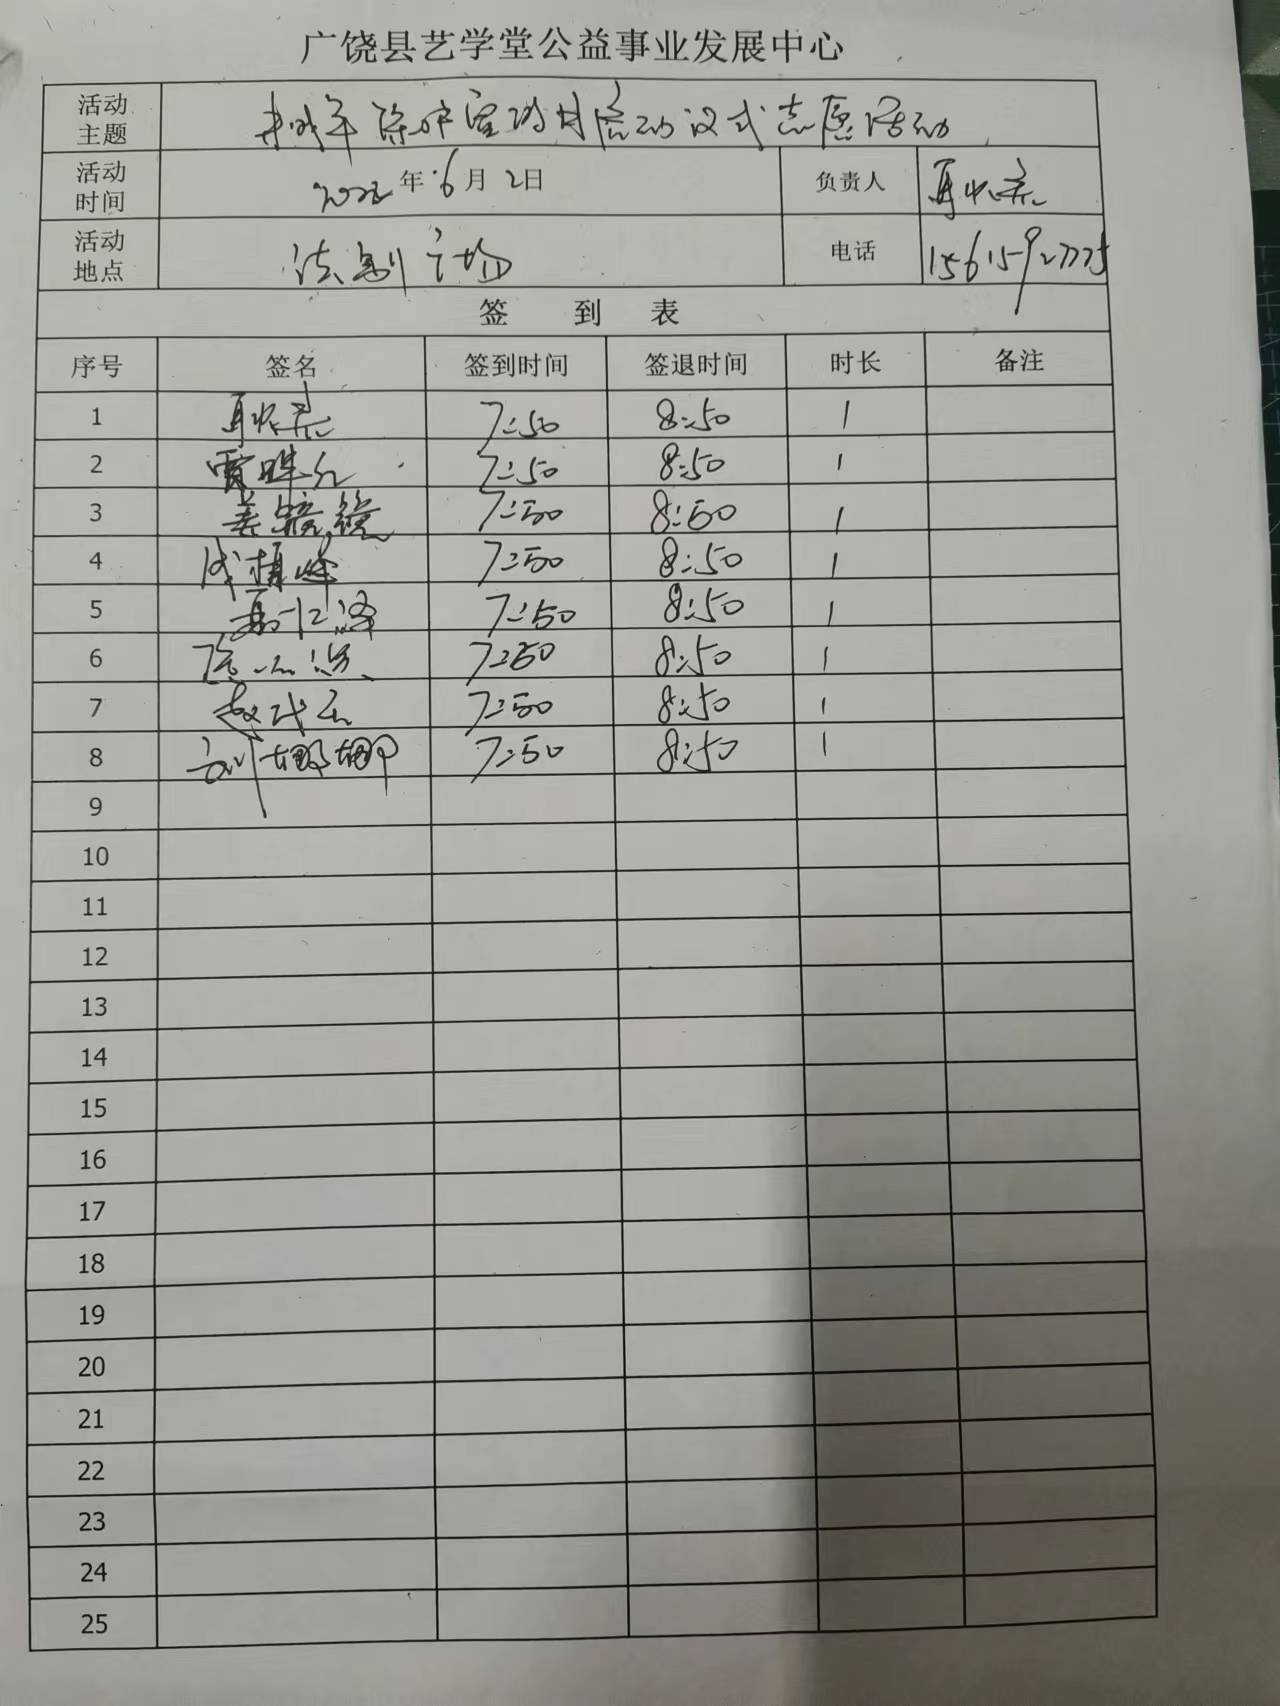 广饶县艺学堂公益事业发展中心
活动主题 未成年 启动仪式志愿活动
活动时间 2022年6月2日 负责人
活动地点 法制广场 电话 15615927775
签到表
序号 签名 签到时间 签退时间 时长 备注
1 7:50 8:50 1
2 7:50 8:50 1
3 7:50 8:50 1
4 7:50 8:50 1
5 7:50 8:50 1
6 7:50 8:50 1
7 7:50 8:50 1
8 刘娜娜 7:50 8:50 1
9
10
11
12
13
14
15
16
17
18
19
20
21
22
23
24
25